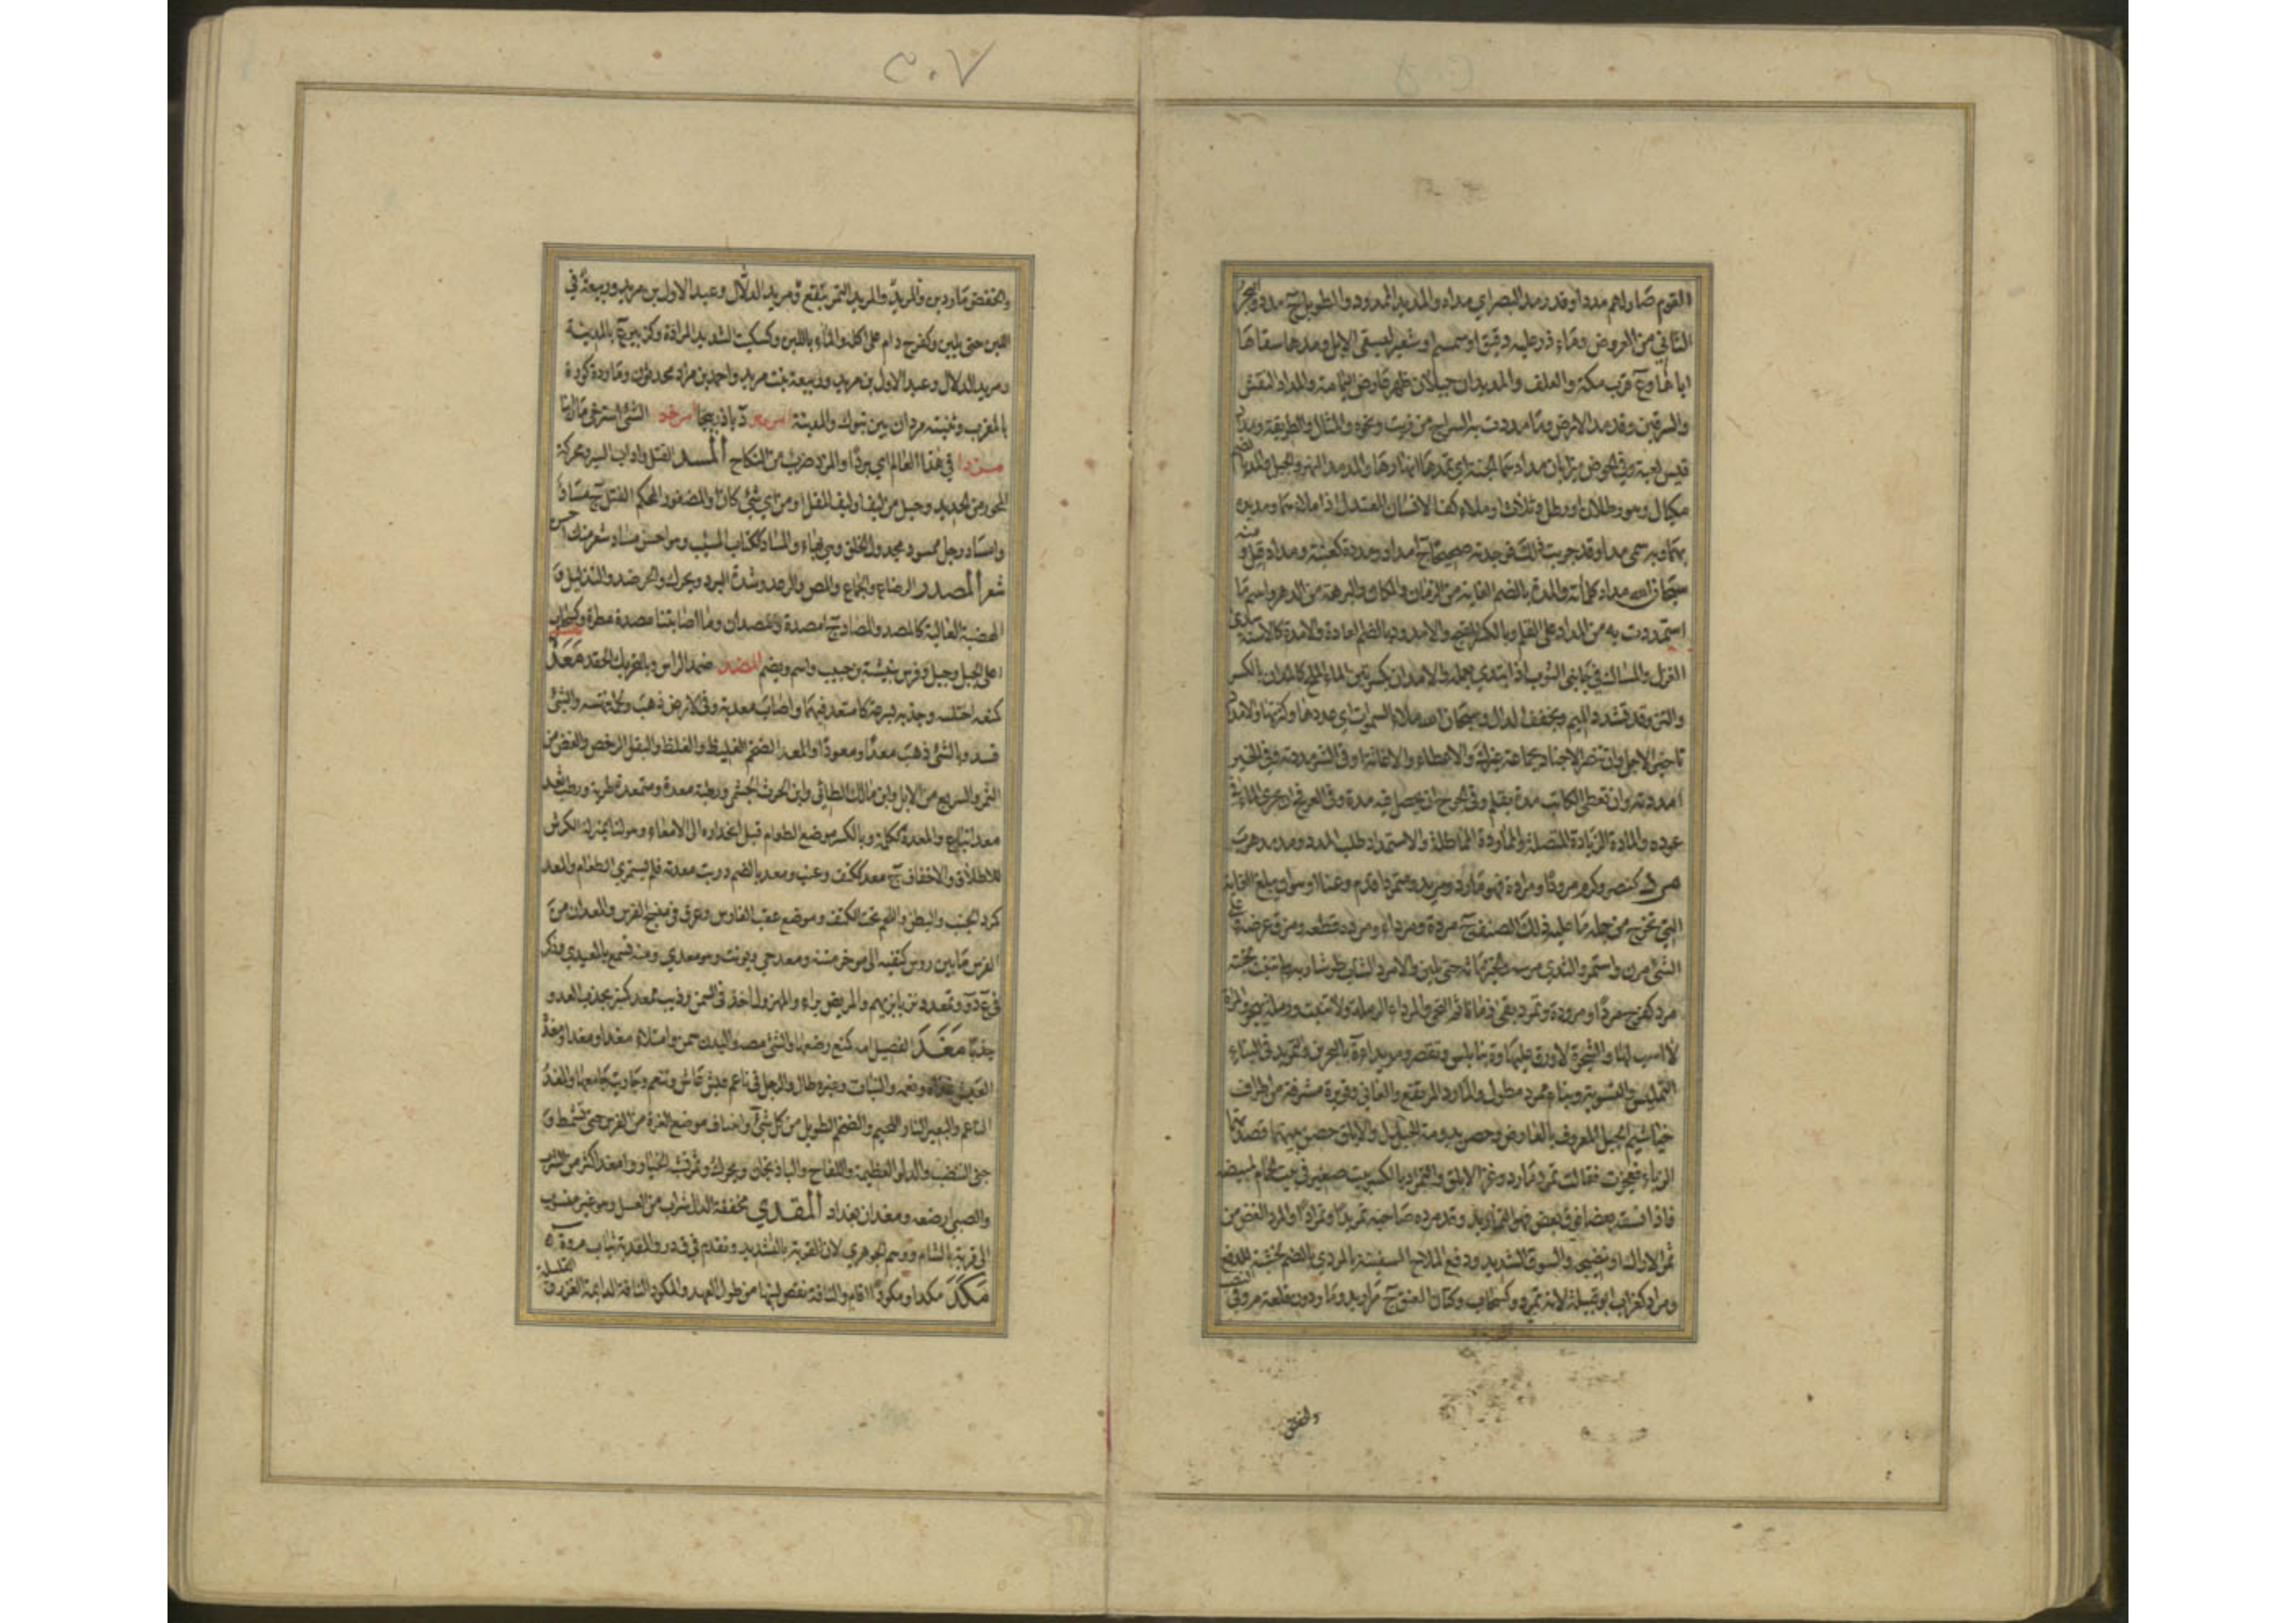 القوم صار لهم مددا وقدر مد البصر اي مداه والمديد الممدود والطويل ج مدد والبحر
الثاني من العروض وماء ذر عليه دقيق او سمسم او شعير ليسقى الابل ومدها سقاها
اياها وع قرب مكة والعلف والمديدان جبلان ظهر عارض اليمامة والمداد النقس
والسرقين وقد مد الارض وما مددت به السراج من زيت ونحوه والمثال والطريقة ومداد
قيس لعبة وفي الحوض ميزابان مدادهما الجنة اي تمدهما انهارها والمد مد النهر والحبل والمد بالضم
مكيال وهو رطلان او رطل وثلث او ملء كفي الانسان المعتدل اذا ملاهما ومد يده
بهما وبه سمى مدا وقد جربت ذلك فوجدته صحيحا ج امداد ومددة كعنبة ومداد قيل ومنه
سبحان الله مداد كلماته والمدة بالضم الغاية من الزمان والمكان والبرهة من الدهر واسم ما
استمددت به من المداد على القلم وبالكسر القيح والامدود بالضم العادة والامدة كالاسنة سدى
الغزل والمساك في جانبى الثوب اذا ابتدي بعمله والامدان بكسرتين الماء الملح كالمدان بالكسر
والنز وقد تشدد الميم وتخفف الدال وسبحان الله مداد السموات اي عددها وكثرتها والامداد
تاخير الاجل وان تنصر الاجناد بجماعة غيرك والاعطاء والاغاثة او في الشر مددته وفي الخير
امددته وان تعطى الكاتب مدة بقلم وفي الجرح ان يحصل فيه مدة وفي العرفج ان يجري الماء في
عوده والمادة الزيادة المتصلة والمماددة المماطلة والاستمداد طلب المدد ومديد هرب
مرد كنصر وكرم مرودا ومرادة فهو مارد ومريد ومتمرد اقدم وعتا او هو ان يبلغ الغاية
التي تخرج من جملة ما عليه ذلك الصنف ج مردة ومرداء ومرده قطعه ومزق عرضه وعلى
الشئ مرن واستمر والثدي مرسه والخبز ماثه حتى يلين والامرد الشاب طر شاربه ولم تنبت لحيته
مرد كفرح مردا ومرودة وتمرد بقى زمانا ثم التحى والمرداء الرملة لا تنبت ورملة بهجر والمراة
لا اسب لها والشجرة لا ورق عليها وة بنابلس وتقصر ومريداءة بالبحرين والتمريد في البناء
التمليس والتسوية وبناء ممرد مطول والمارد المرتفع والعاتي وقويرة مشرفة من اطراف
خياشيم الجبل المعروف بالعارض وحصن بدومة الجندل والابلق حصن بتيماء قصدتهما
الزباء فعجزت فقالت تمرد مارد وعز الابلق والتمراد بالكسر بيت صغير في بيت الحمام لمبيضه
فاذا نسقه بعضا فوق بعض فهو التماريد وقد مرده صاحبه تمريدا وتمرادا والمرد الغض من
ثمر الاراك او نضيجه والسوق الشديد ودفع الملاح السفينة بالمردي بالضم لخشبة للدفع
ومراد كغراب ابو قبيلة لانه تمرد وكسحاب وكتان العنق ج مراريد وماردون قلعة م وفي النصب
والخفض
٣٠٧
والخفض ماردين والمريد والمريد التمر ينقع ومريد الدلال وعبد الاول بن مريد وربيعة في
اللبن حتى يلين وكفرح دام على اكله والماء باللبن وكسكيت الشديد المرادة وكزبير ع بالمدينة
ومريد الدلال وعبد الاول بن مريد وربيعة بنت مريد واحمد بن مراد محدثون وماردة كورة
بالمغرب وثنية مردان بين تبوك والمدينة امريد د باذربيجان امرخد الشئ استرخى مازلنا
مزدا في هذا العام اي بردا والمزد ضرب من النكاح المسد الفتل واداب السير ومحركة
المحور من الحديد وحبل من ليف او ليف المقل او من اي شئ كان او المضفور المحكم الفتل ج مساد
وامساد ورجل ممسود مجدول الخلق وهي بهاء والمساد ككتاب المسب وهو احسن مساد شعر منك احسن
شعر المصد الرضاع والجماع والمص والرعد وشدة البرد ويحرك والحر ضد والتذليل و
الهضبة العالية كالمصد والمصاد ج امصدة ومصدان وما اصابتنا مصدة مطرة وكسحاب
اعلى الجبل وجبل وفرس نبيشة بن حبيب واسم ويضم المضد ضمد الراس وبالتحريك الحقد معد
كمنعه اختلسه وجذبه بسرعة كامتعد فيهما واصاب معدته وفي الارض ذهب ولحمه نهسه والشئ
فسد وبالشئ ذهب معدا ومعودا والمعد الضخم الغليظ والغلظ والبقل الرخص والغض من
الثمر والسريع من الابل وابن مالك الطائي وابن الحرث الجشمى ورطبة معدة ومتمعدة طرية ورطب ثعد
معد اتباع والمعدة ككلمة وبالكسر موضع الطعام قبل انحداره الى الامعاء وهو لنا بمنزلة الكرش
للاظلاف والاخفاف ج معد ككتف وعنب ومعد بالضم دويت معدته فلم يستمرى الطعام والمعد
كمرد الجنب والبطن واللحم تحت الكتف وموضع عقب الفارس وعرق في منسج الفرس والمعدان من
الفرس ما بين رؤس كتفيه الى موخر متنه ومعد حي ويونث وهو معدي ومنه تسمع بالمعيدي وذكر
في ع د د وتمعدد تزيا بزيهم والمريض براء والمهزول اخذ في السمن وذئب ممعد كمنبر يجذب العدو
جذبا مغد الفصيل امه كمنع رضعها والشئ مصه والبدن سمن وامتلاء مغدا ومغدا ومغد
العيش غذاه ونعمه والنبات وغيره طال والرجل في ناعم عيش عاش وتنعم وجاريته جامعها والمغد
الناعم والبعير التار اللحيم والضخم الطويل من كل شئ وانتاف موضع الغرة من الفرس حتى تشمط و
جنى التنضب والدلو العظيمة واللفاح والباذنجان ويحرك وثمر يشبه الخيار وامغد اكثر من الشرب
والصبي ارضعه ومغدان بغداد المقدي مخففة الدال شراب من العسل وهو غير منسوب
الى قرية بالشام ووهم الجوهري لان القرية بالتشديد وتقدم في ق د د والمقدية ثياب م وة
مكد مكدا ومكودا اقام والناقة نقص لبنها من طول العهد والمكود الناقة الدائمة الغزر والقليلة